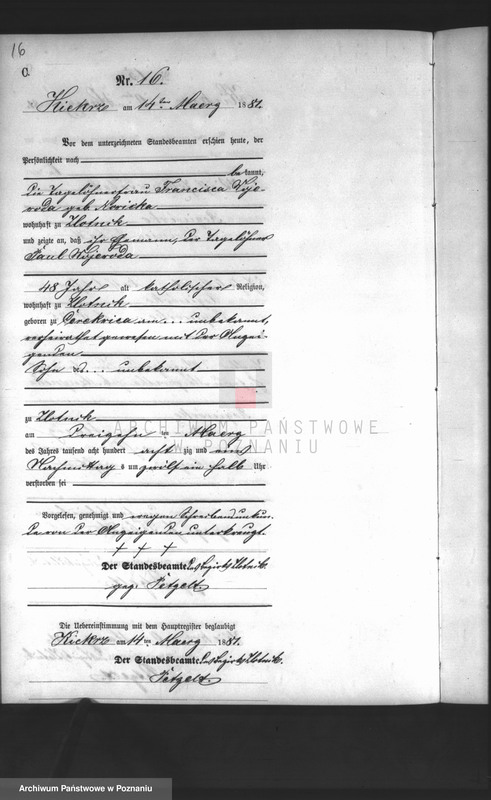 16
a
Nr. 16.
Kiekrz am 14ten Maerz 1881.
Vor dem unterzeichneten Standesbeamten erschien heute, der
Persönlichkeit nach
bekannt,
die Tagelöhnerfrau Francisca Woje-
woda geb. Nowicka
wohnhaft zu Zlotnik
und zeigte an, daß ihr Ehemann, der Tagelöhner
Paul Wojewoda
48 Jahre alt katholischer Religion,
wohnhaft zu Zlotnik
geboren zu Cerekwica am ... unbekannt,
verheirathet gewesen mit der Anzei-
genden
Sohn des ... unbekannt
zu Zlotnik
am Dreizehn ten Maerz
des Jahres tausend acht hundert acht zig und eins
Nachmittags um zwölf ein halb Uhr
verstorben sei
Vorgelesen, genehmigt und wegen Schreibensunkun-
de von der Anzeigenden unterkreuzt.
+ + +
Der Standesbeamte des Bezirks Zlotnik.
gez. Petzelt
Die Uebereinstimmung mit dem Hauptregister beglaubigt
Kiekrz am 14ten Maerz 1881.
Der Standesbeamte des Bezirks Zlotnik.
Petzelt
ARCHIWUM PAŃSTWOWE
W POZNANIU
Archiwum Państwowe w Poznaniu